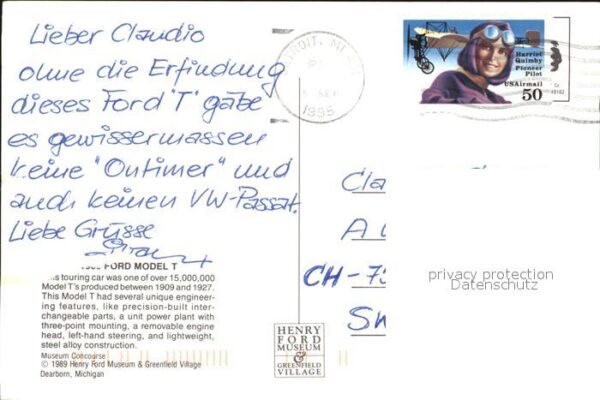 Lieber Claudio
ohne die Erfindung
dieses Ford "T" gäbe
es gewissermassen
keine "Ontimer" und
auch keinen VW-Passat.
Liebe Grüsse
FORD MODEL T
touring car was one of over 15,000,000
Model T's produced between 1909 and 1927.
This Model T had several unique engineer-
ing features, like precision-built inter-
changeable parts, a unit power plant with
three-point mounting, a removable engine
head, left-hand steering, and lightweight,
steel alloy construction.
Museum Concourse
© 1989 Henry Ford Museum & Greenfield Village
Dearborn, Michigan
HENRY
FORD
MUSEUM
&
GREENFIELD
VILLAGE
DETROIT, MI
SEP
1995
Harriet
Quimby
Pioneer
Pilot
USAirmail
50
Cla
A
CH-7
privacy protection
Datenschutz